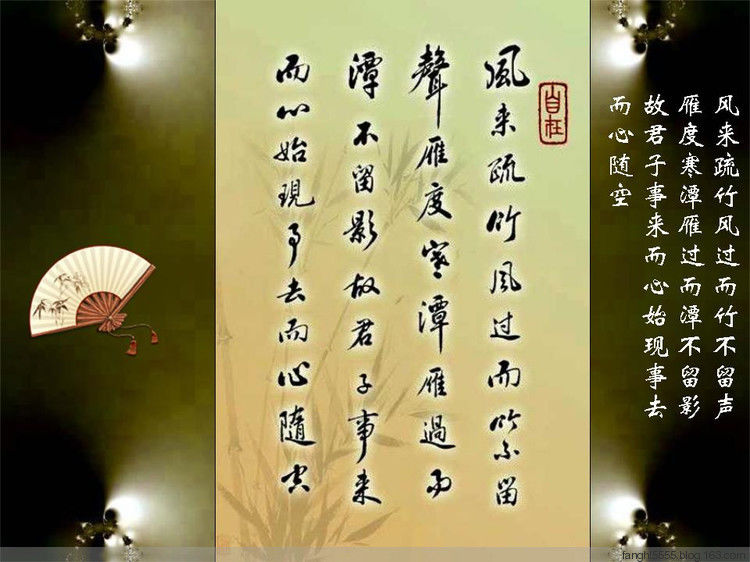 风来疏竹风过而竹不留声
雁度寒潭雁过而潭不留影
故君子事来而心始现事去
而心随空
自在
風来疏竹风过而竹不留
聲雁度寒潭雁過而
潭不留影故君子事来
而心始現事去而心隨空
fanghl5555.blog.163.com